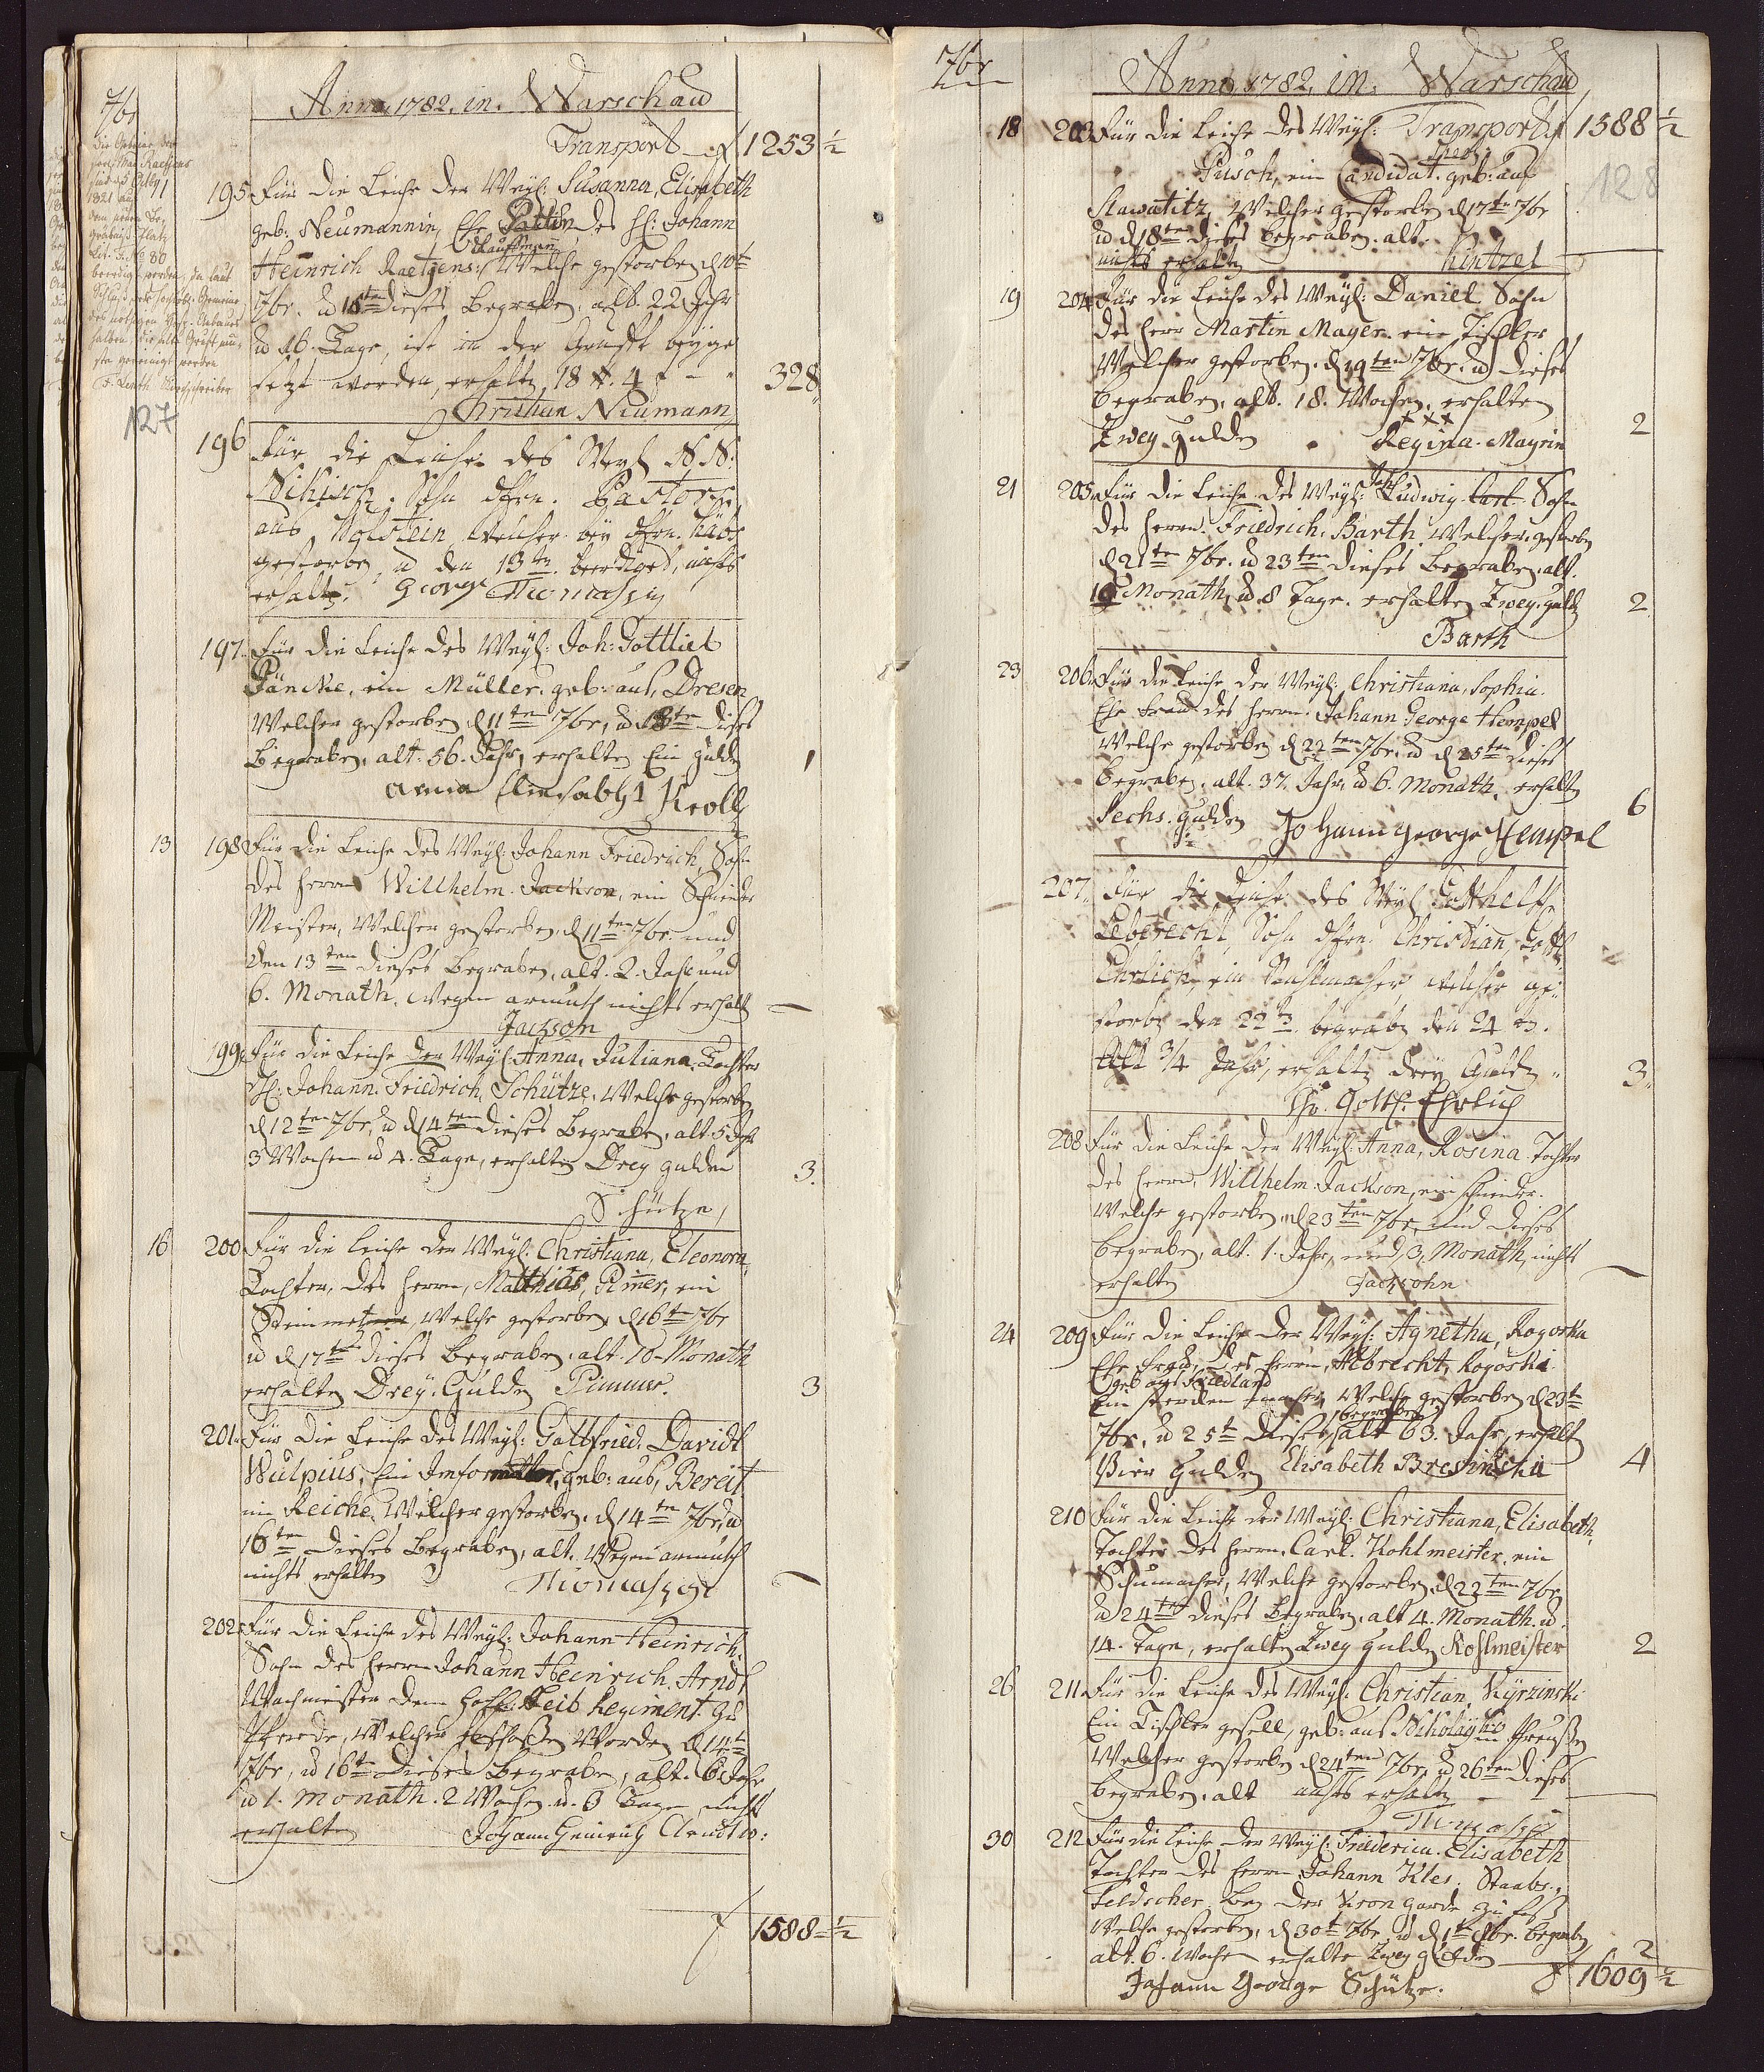 7br
Anno, 1782. in. Warschau
Transport f 1253 1/2
Die Gebeine der
1821 auf
dem neuen Be-
gräbnis Platz
Lit. No 80
beerdigt worden, da laut
Schluß Gemeine
halben die alte Gruft
gereinigt werden
127
195 Für die Leiche der Weyl: Susanna, Elisabeth
geb: Neumannin, Ehe Gattin des H: Johann
Kauffmann
Heinrich Raetzens: Welche gestorben d 10te
7br. ud 16ten dieses Begraben. alt. 22 Jahr
ud 16. Tage, ist in der Grufft beyge
setzt worden, erhalten, 18 # 4 f - " 328"
Christian Neumann
196 Für die Leiche des Weyl N. N:
Schisch. Sohn dHrn. Pastors
aus Holstein, welcher bey dHrn.
gestorben, ud den 13tn beerdiget, nichts
erhalten. George Thomaszig
197. Für die Leiche des Weyl: Joh: Gottlieb
Päncke, ein Müller. geb: aus, Dresen
Welcher gestorben d 11ten 7br, ud 13ten dieses
Begraben, alt. 56. Jahr, erhalten Ein guldn 1
anna Eliesabeht Krolln
13 198 Für die Leiche des Weyl: Johann Friedrich, Sohn
des Herrn Willhelm. Jackson, ein Schneider
Meister, Welcher gestorben. d 11ten 7br. und
den 13ten dieses Begraben, alt. 2. Jahr und
6. Monath. wegen armuth nichts erhalt —
Jackson
199. Für die Leiche der Weyl: Anna, Juliana. Tochter
H: Johann. Friedrich, Schütze. Welche gestorben
d 12ten 7br, ud d 14ten dieses Begraben, alt 5 Jahr
3 Wochen ud 4. Tage, erhalten Drey gulden 3.
Schütze,
16 200 Für die Leiche der Weyl: Christiana, Eleonora,
Tochter, des Herrn, Matthias, Pimer, ein
Steinmetz, Welche gestorben d 16ten 7br
ud d 17te dieses Begraben. alt. 10 - Monath
erhalten Drey. Gulden Pimmer. 3
201. Für die Leiche des Weyl: Gottfried. Davidt
Wulpius, Ein Informator, geb: aus, Bereit
im Reiche. Welcher gestorben. d 14tn 7br, ud
16ten dieses Begraben, alt. Wegen armuth
nichts erhalten Thomaszig —
202. Für die Leiche des Weyl: Johann Heinrich.
Sohn des Herrn Johann Heinrich. Arndt
Wachmeister dem Hoff: Leib Regiment zu
Pferde, Welcher worden d 14t
7br, ud 16ten Dieses Begraben, alt. 6 Jahr
ud 1. Monath. 2 Wochen ud. 3 Tage nichts
erhalten Johann Heinrich Arndt
f 1588 - 1/2
7br
Anno, 1782. in: Warschau
18 203 Für die Leiche des Weyl: Transport f 1588 1/2
128
Theol:
Pusch, ein Candidat. geb: aus
Slawatitz, Welcher gestorben d 17ten 7br
ud d 18ten dieses begraben. alt.
nichts erhalten Hintzel —
19 204 Für die Leiche des Weyl: Daniel Sohn
des Herr Martin Mayer. ein Tischler
Welcher gestorben. d 19ten 7br. ud dieses
begraben, alt. 18. Wochen, erhalten
x x x
Zwey Gulden Regina. Mayrin 2
21 205. Für die Leiche des Weyl: Ludwig Carl. Sohn
des Herrn. Friedrich. Barth Welcher gestorben
d 21ten 7br. ud 23ten dieses Begraben alt.
Monath, ud 8 Tage. erhalten Zwey. guldn 2
Barth
23 206. Für die Leiche der Weyl: Christiana, Sophia.
Ehe Frau des Herrn. Johann George Hempel
Welche gestorben d 22ten 7br. ud d 25ten dieses
begraben, alt. 37. Jahr, ud 6. Monath. erhalten
Sechs. gulden Johann George Hempel 6
207. Für die Leiche des Weyl Gotthelff
Leberecht, Sohn dHrn. Christian Gottf
Ehrlich, ein Stuhlmacher, welcher ge:
storben den 22tn begraben den 24 tn.
Alt 3/4 Jahr, erhalten drey Gulden " 3"
Chr. Gottf. Ehrlich
208 Für die Leiche der Weyl: Anna, Rosina. Tochter
des Herrn, Willhelm. Jackson, ein Schneider.
Welche gestorben, d 23ten 7br, und dieses
begraben, alt. 1. Jahr, und, 3, Monath, nichts
erhalten Jacksohn —
24 209 Für die Leiche der Weyl: Agnetha, Rogorka
Ehe Frau, des Herrn, Albrecht, Rogorski.
geb aus Friedland
Welche gestorben d 23te
begraben
7br, ud 25te dieses, alt 63. Jahr, erhalt
Vier Gulden Elisabeth Bresinska 4
210 Für die Leiche der Weyl: Christiana, Elisabeth,
Tochter des Herrn, Carl. Kohlmeister, ein
Schumacher, Welche gestorben, d 22ten 7br
ud 24ten dieses Begraben, alt 4. Monath. ud
14. Tage, erhalten Zwey gulden Kohlmeister 2
26 211. Für die Leiche des Weyl: Christian, Kyrzinski.
Ein Tischler gesell, geb: aus Nikolayki in Preußen
Welcher gestorben d 24ten 7br, ud 26ten dieses
begraben, alt nichts erhalten —
Thomaszig
30 212 Für die Leiche der Weyl: Friderica. Elisabeth
Tochter des Herrn Johann Kles. Staabs.,
Feldscher, bey der Kron Garde zu Fuß
Welche gestorben, d 30t 7br, ud d 1te 8br. begraben
alt. 6. Wochen erhalte Zwey gulden 2
Johann George Schütze. f 1609 1/2